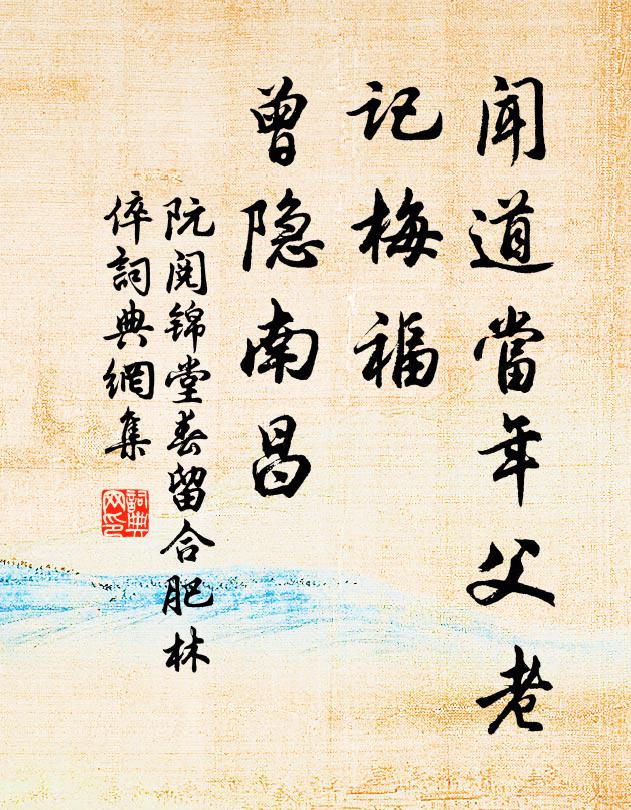 聞道當年父老
記梅福
曾隐南昌
阮閱锦堂春留合肥林
倅詞典網集
詞典
网印